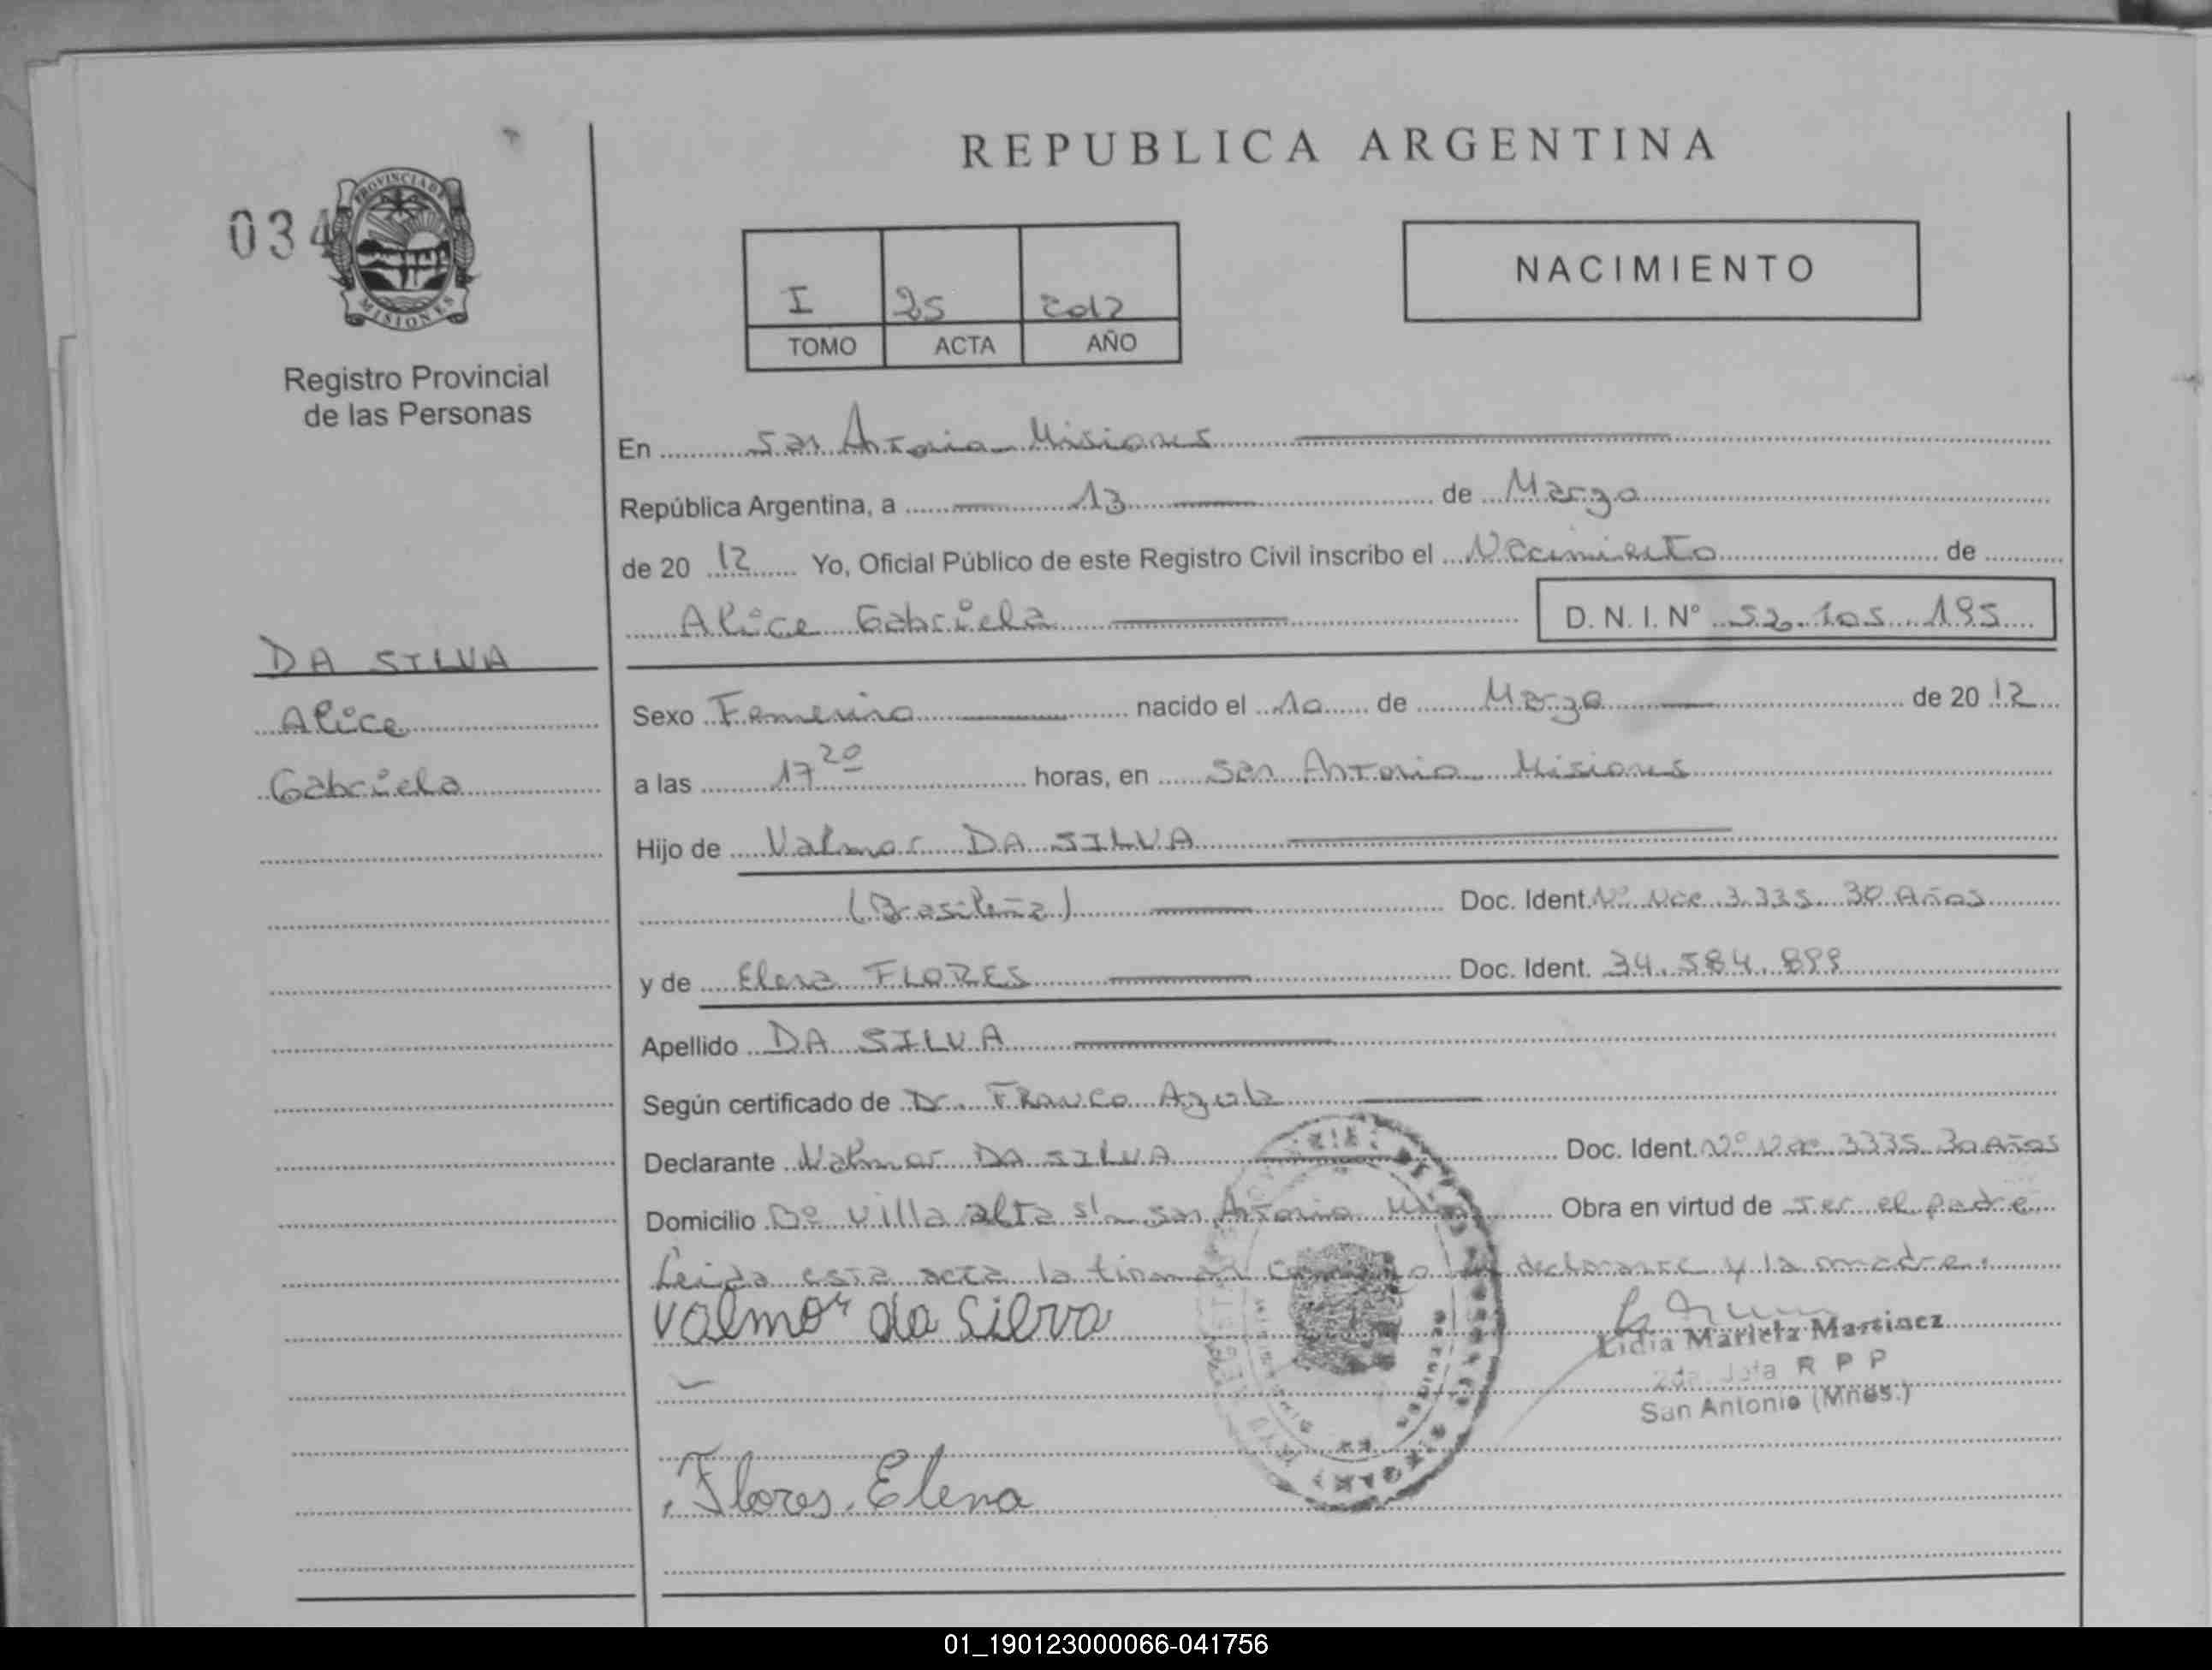 REPUBLICA ARGENTINA
034
PROVINCIA DE
MISIONES
Registro Provincial
de las Personas
I 25 2012
TOMO ACTA AÑO
NACIMIENTO
En San Antonio Misiones
República Argentina, a 13 de Marzo
de 20 12 Yo, Oficial Público de este Registro Civil inscribo el Nacimiento de
Alice Gabriela D. N. I. Nº 52.105.195
DA SILVA
Alice
Gabriela
Sexo Femenino nacido el 10 de Marzo de 20 12
a las 17 20 horas, en San Antonio Misiones
Hijo de Valmor DA SILVA
(Brasileña) Doc. Ident. Nº 3.335 30 Años
y de Elena FLORES Doc. Ident. 34.584.899
Apellido DA SILVA
Según certificado de Dr. FRANCO
Declarante Valmor DA SILVA Doc. Ident. Nº 3335 30 Años
Domicilio Bº Villa alta s/n San Antonio Obra en virtud de ser el padre
Leida esta acta la firman declarante y la madre.
valmor da silva
Lidia Mariela Martinez
2da. Jefa R P P
San Antonio (Mnes.)
Flores, Elena
01_190123000066-041756